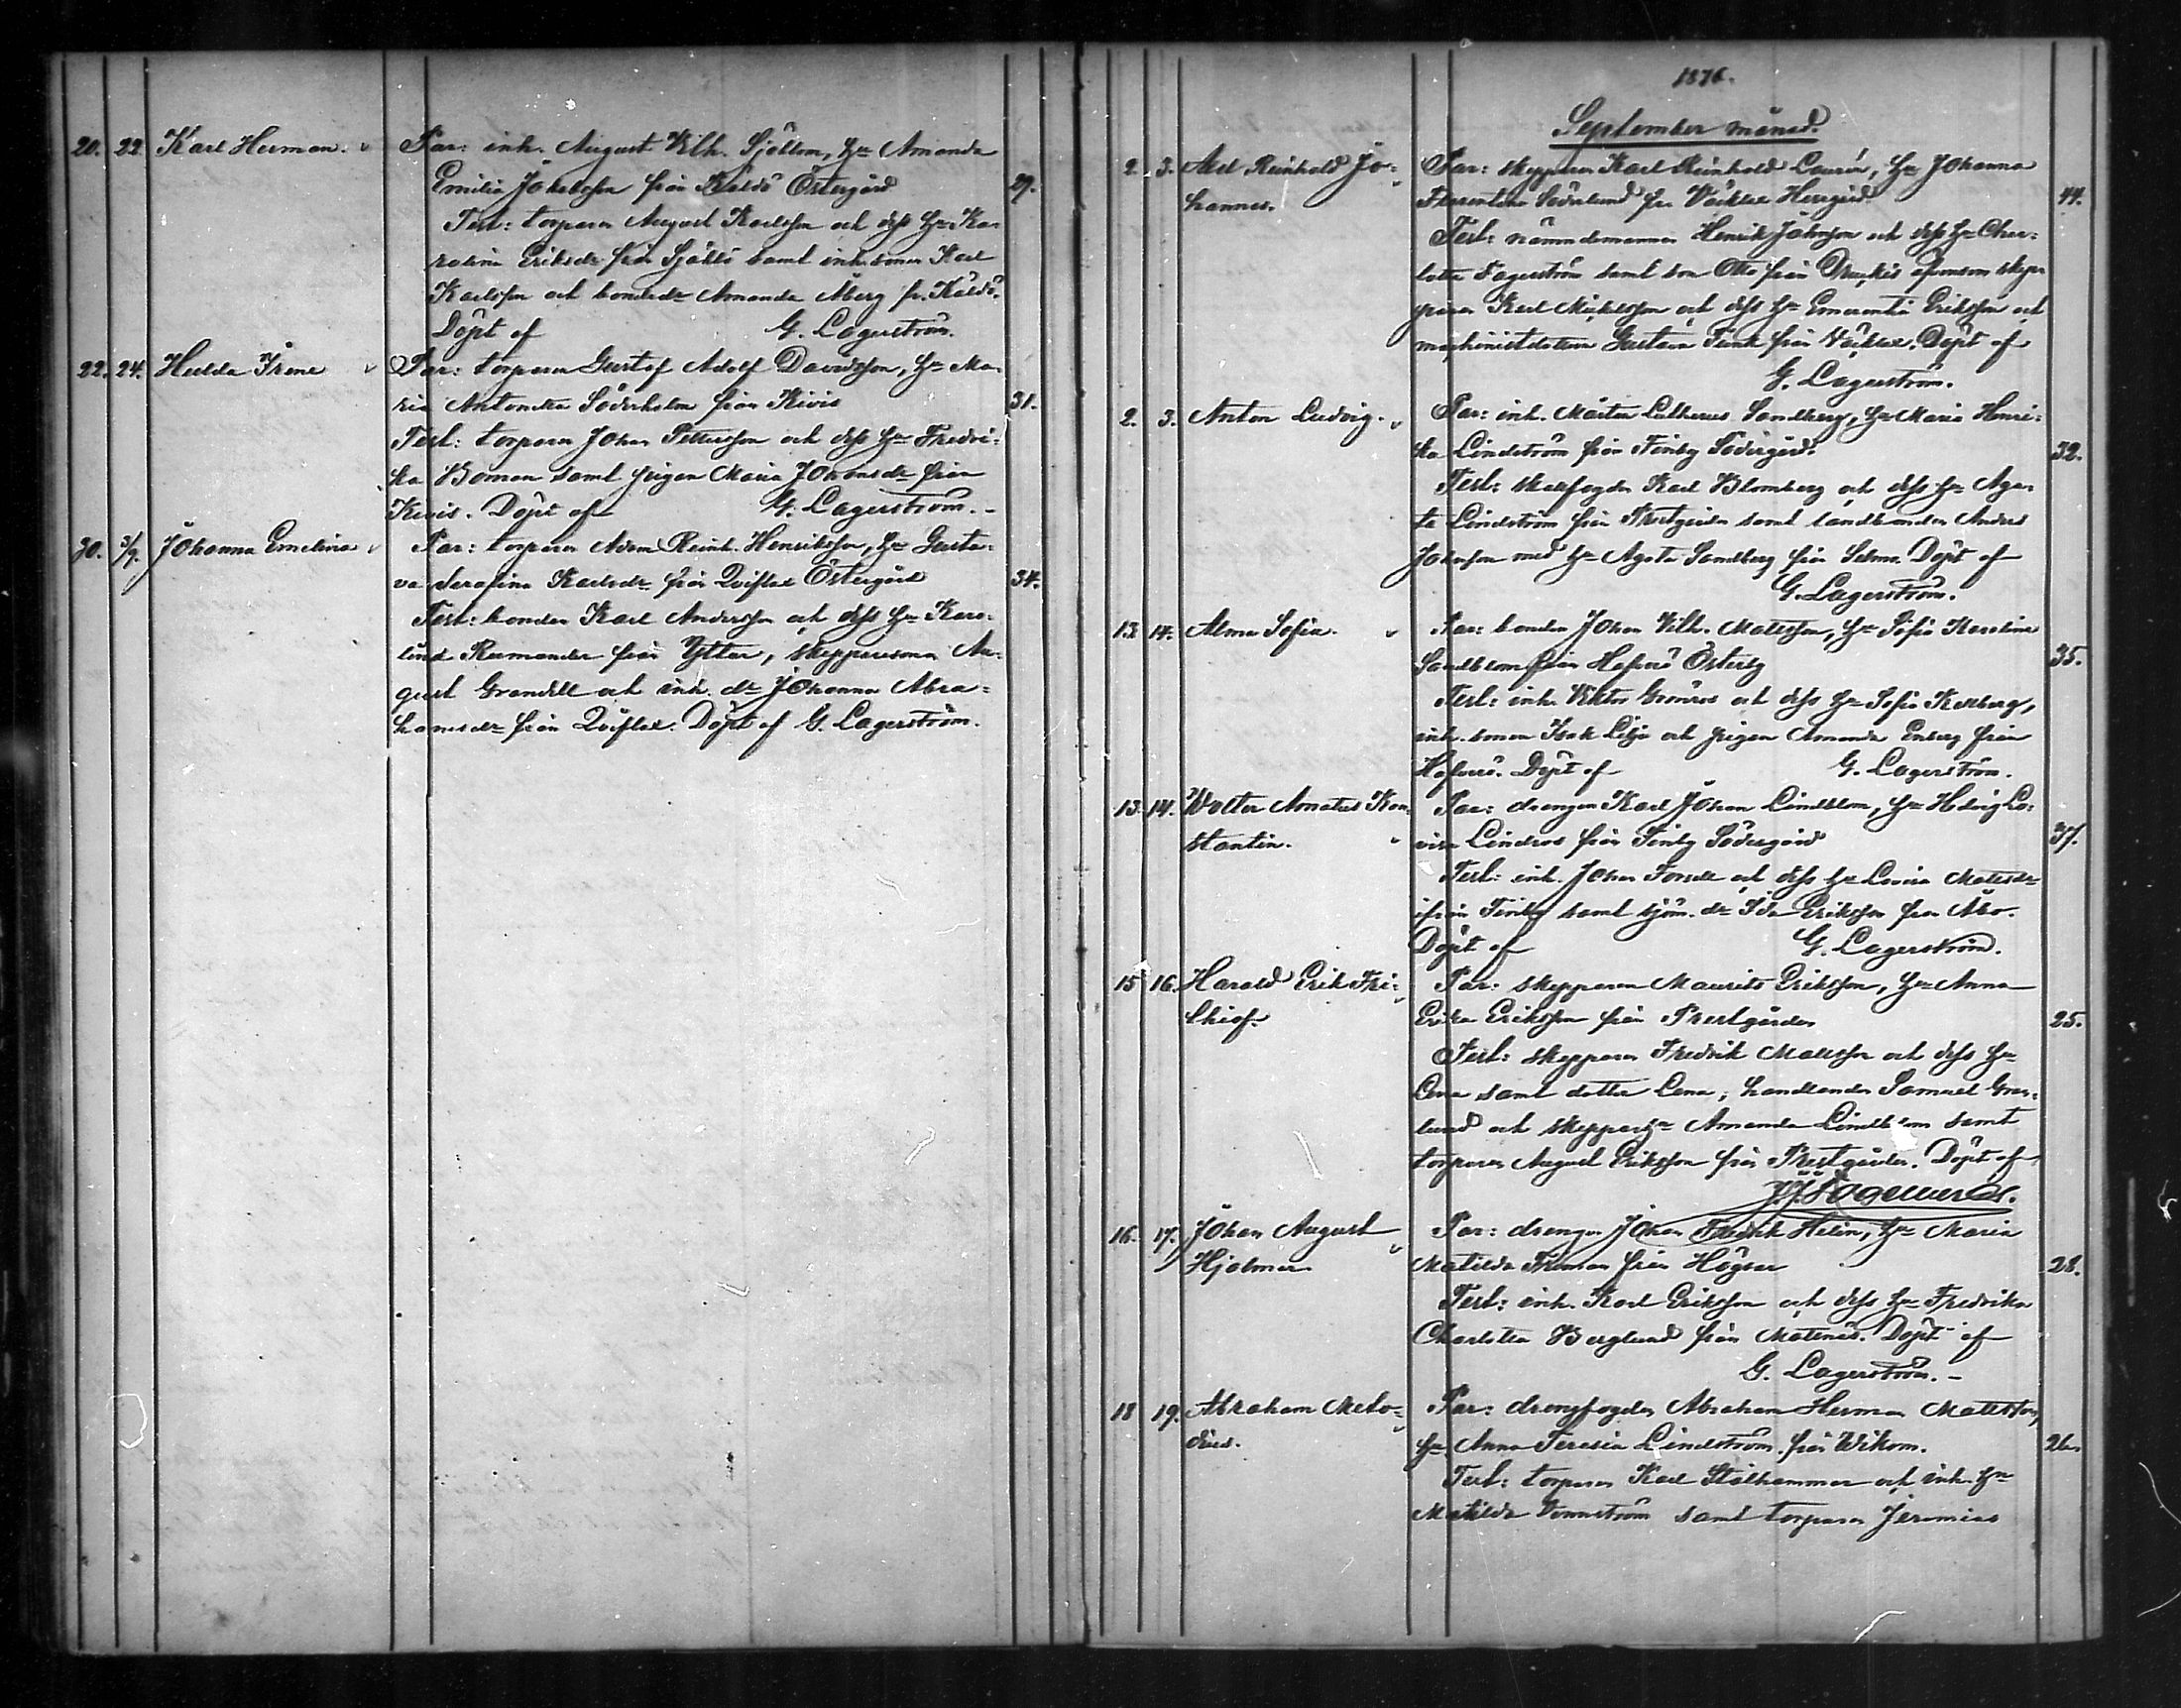 20. 22. Karl Herman. Par: inh. August Vilh. Sjöblom, hu Amanda
Emilia Jakobsson från Käldö Östergård 29.
Test: torparen August Karlsson och dess hu Ka-
rolina Eriksdr från Sjählö samt inh.sonen Karl
Karlsson och bondedr Amanda Åberg fr. Käldö.
Döpt af G. Lagerström.
22. 24. Hulda Irene Par: torparen Gustaf Adolf Davidsson, hu Ma-
ria Antonetta Söderholm från Kivis 31.
Test: torparen Johan Pettersson och dess hu Fredri-
ka Boman samt pigan Maria Johansdr från
Kivis. Döpt af G. Lagerström.-
30. 3/9. Johanna Emelina Par: torparen Adam Reinh. Henriksson, hu Gusta-
va Serafina Karlsdr från Qviflax Östergård 34.
Test: bonden Karl Andersson och dess hu Karo-
lina Rumander från Ytter, skepparesonen Au-
gust Grandell och inh. dr Johanna Abra-
hamsdr från Qviflax. Döpt af G. Lagerström.
1876.
September månad.
2. 3. Axel Reinhold Jo- Par: skepparen Karl Reinhold Laurén, hu Johanna
hannes. Florentina Söderlund fr. Väcklax Herrgård 44.
Test: nämndemannen Henrik Johnsson och dess hu Char-
lotta Fagerström samt son Otto från skep-
paren Karl Mickelsson och dess hu Emerentia Eriksson och
maschinistdottern Gustava Funk från Väcklax. Döpt af
G. Lagerström.
2. 3. Anton Ludvig. Par: inh. Mårten Lutherus Sandberg, hu Maria Henri-
ka Lindström från Finby Södergård. 32.
Test: skallfogden Karl Blomberg och dess hu Aga-
ta Lindström från Prestgården samt landbonden Anders
Johnsson med hu Agata Sandberg från Selmo. Döpt af
G. Lagerström.
13. 14. Alma Sofia. Par: bonden Johan Vilh. Mattsson, hu Sofia Karolina
Sandblom från Hafverö Österby 35.
Test: inh. Viktor Grönroos och dess hu Sofia Karlberg,
inh. sonen Isak Lilja och pigan Amanda Enberg från
Hafverö. Döpt af G. Lagerström.
13. 14. Wolter Amatus Kon- Par: drengen Karl Johan Lindblom, hu Hedvig Lo-
stantin. visa Lindroos från Finby Södergård 37.
Test: inh. Johan Forsell och dess hu Lovisa Mattsdr
ifrån Finby samt sjöm. dr Ida Eriksson från Åbo.
Döpt af G. Lagerström.
15 16. Harald Erik Fri- Par: skepparen Maurits Eriksson, hu Anna
thiof. Erika Eriksson från Prestgården 25.
Test: skepparen Fredrik Mattsson och dess hu
Lena samt dotter Lena, handlanden Samuel Grön-
lund och skepparhu Amanda Lindblom samt
torparen August Eriksson från Prestgården. Döpt af
16. 17. Johan August Par: drengen Johan Fredrik Helin, hu Maria
Hjalmar Matilda Friman från Högsar 28.
Test: inh. Karl Eriksson och dess hu Fredrika
Charlotta Berglund från Mattnäs. Döpt af
G. Lagerström.-
18 19. Abraham Meto- Par: drengfogden Abraham Herman Mattsson,
dius. hu Anna Teresia Lindström från Wikom. 26.
Test: torparen Karl Stålhammar och inh. hu
Matilda Vennström samt torparen Jeremias